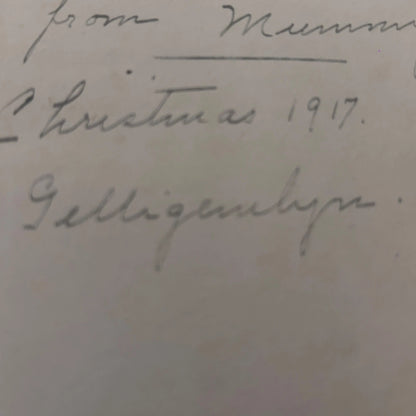 from Mummy
Christmas 1917.
Gelligemlyn.